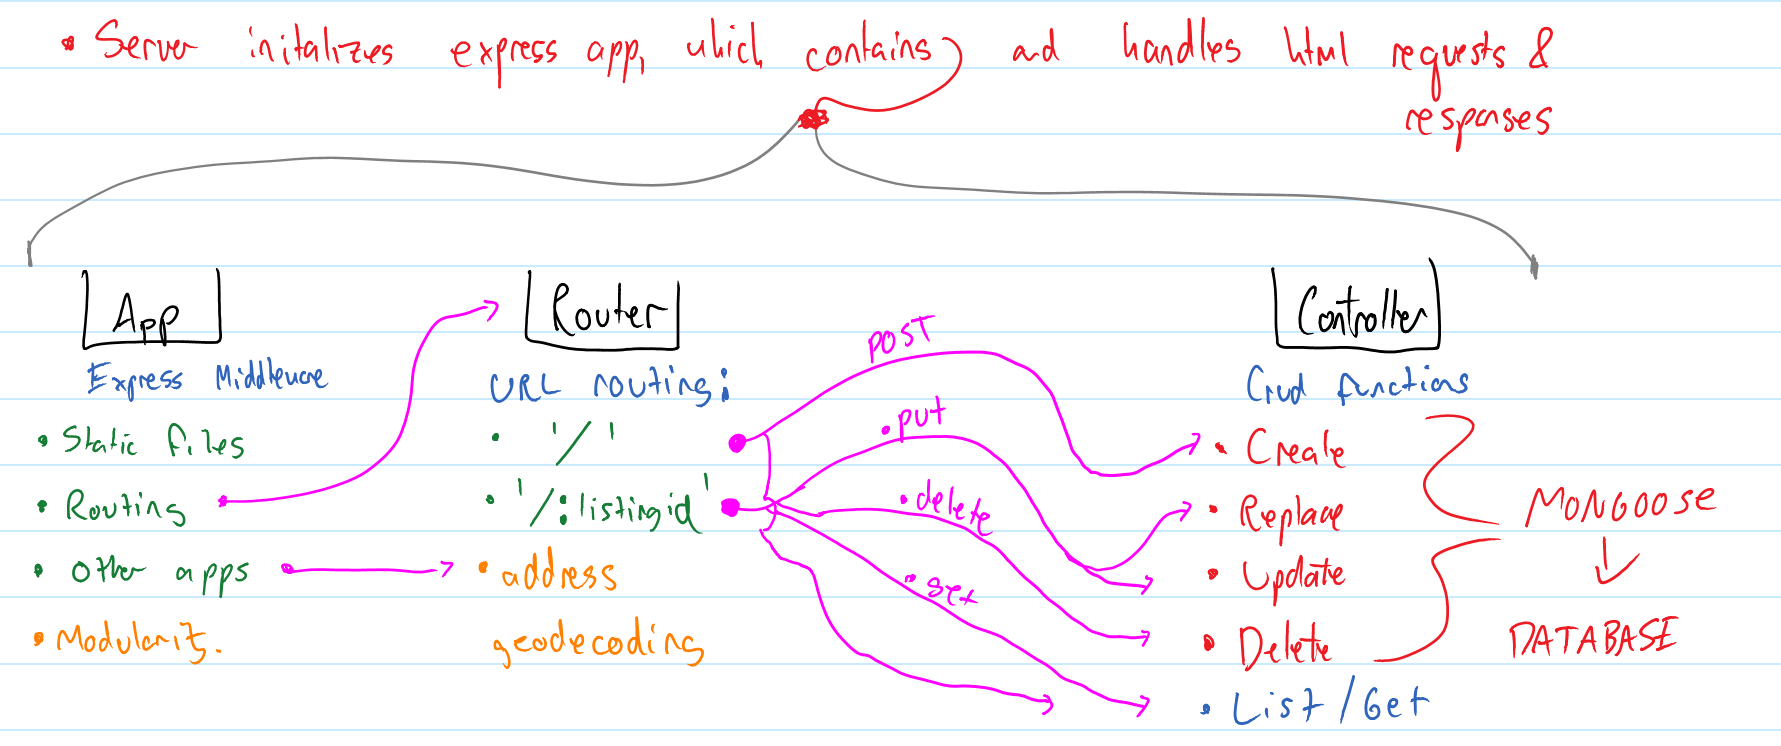 • Server initalizes express app, which contains and handles html requests &
responses
App
Express Middleware
• Static files
• Routing
• Other apps
• Modularit.
Router
URL routing:
• '/'
• '/:listingid'
• address
geodecoding
post
• put
• delete
• get
Controller
Crud functions
• Create
• Replace
• Update
• Delete
• List/Get
MONGOOSE
DATABASE